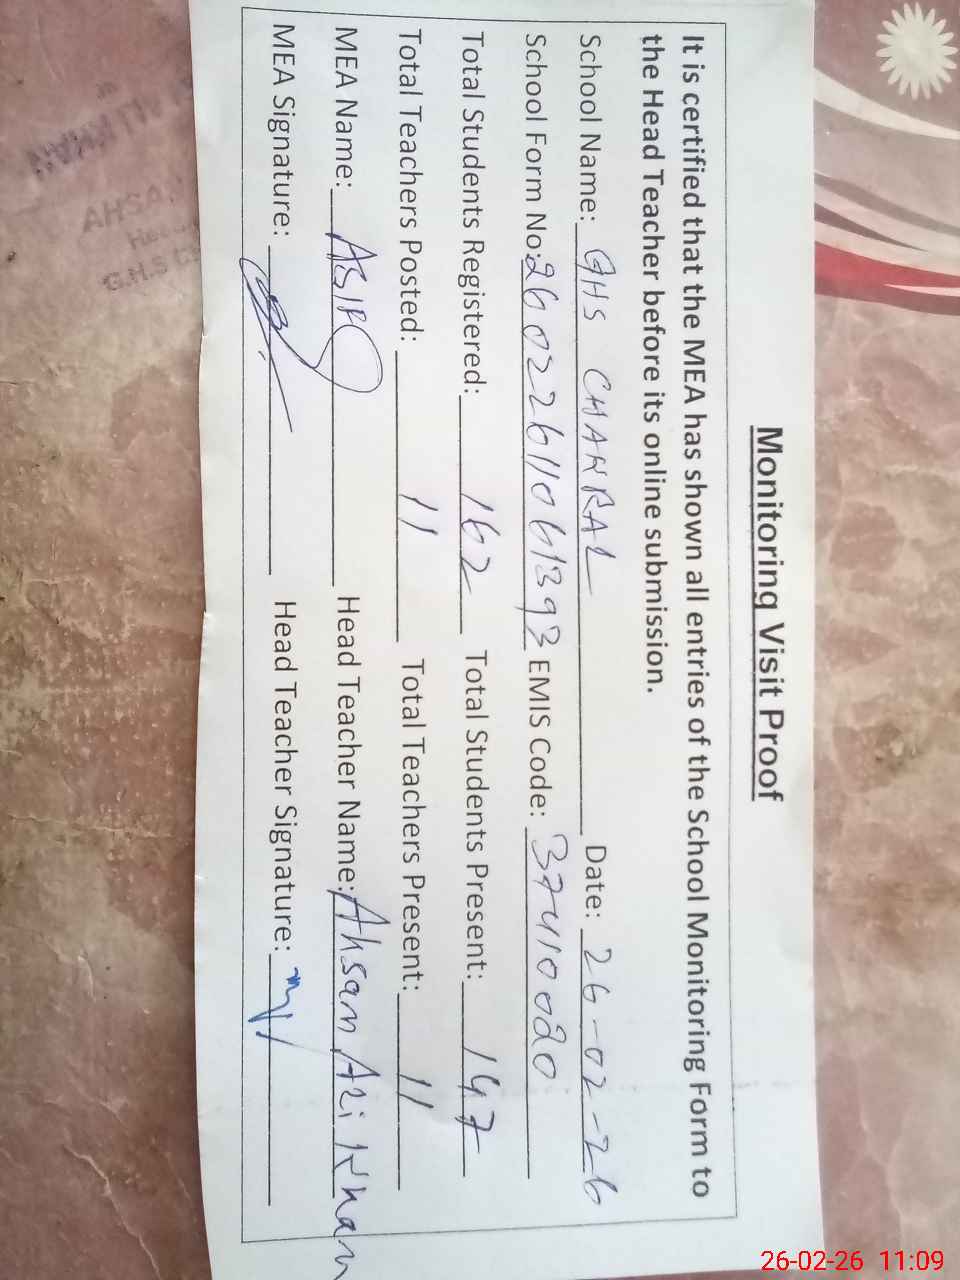 Monitoring Visit Proof
It is certified that the MEA has shown all entries of the School Monitoring Form to
the Head Teacher before its online submission.
School Name: GHS CHANRAL Date: 26-02-26
School Form No: 26022611061393 EMIS Code: 37410020
Total Students Registered: 162 Total Students Present: 147
Total Teachers Posted: 11 Total Teachers Present: 11
MEA Name: ASIF Head Teacher Name: Ahsan Ali Khan
MEA Signature: Head Teacher Signature:
AHSA
G.H.S
26-02-26 11:09